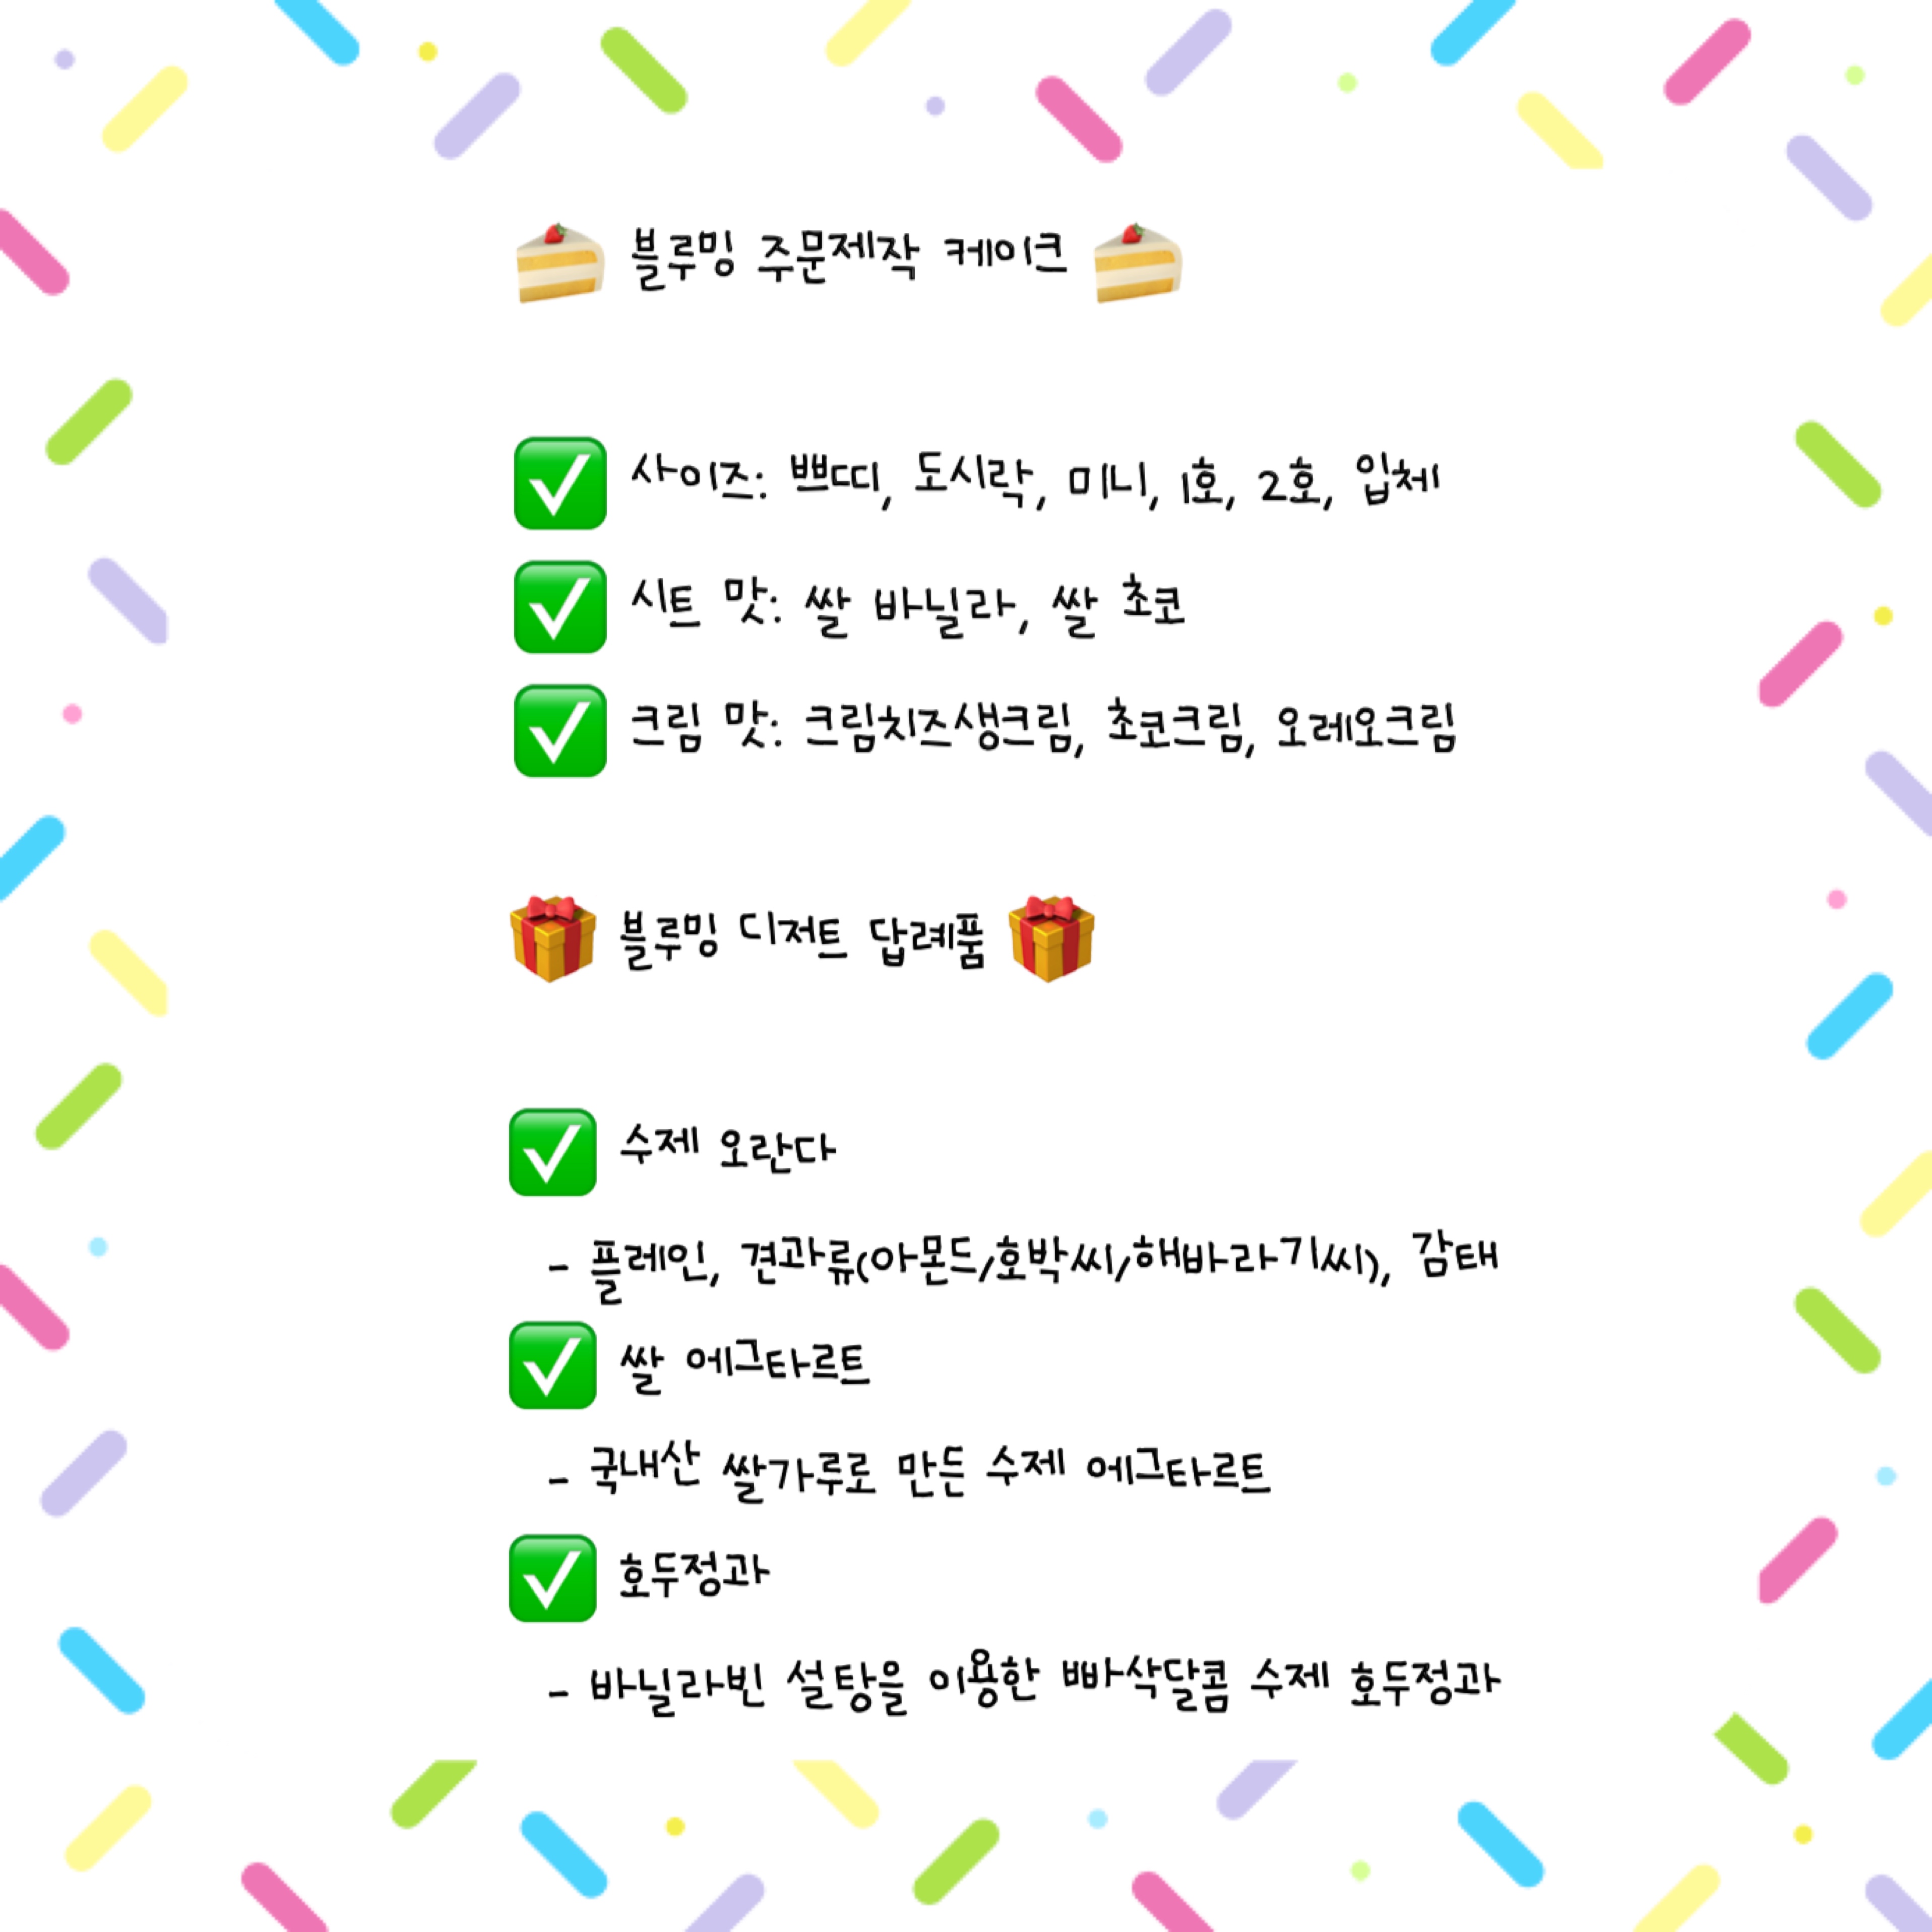 🍰 블루밍 주문제작 케이크 🍰
✅ 사이즈: 쁘띠, 도시락, 미니, 1호, 2호, 입체
✅ 시트 맛: 쌀 바닐라, 쌀 초코
✅ 크림 맛: 크림치즈생크림, 초코크림, 오레오크림
🎁 블루밍 디저트 답례품 🎁
✅ 수제 오란다
- 플레인, 견과류(아몬드/호박씨/해바라기씨), 감태
✅ 쌀 에그타르트
- 국내산 쌀가루로 만든 수제 에그타르트
✅ 호두정과
- 바닐라빈 설탕을 이용한 빠삭달콤 수제 호두정과